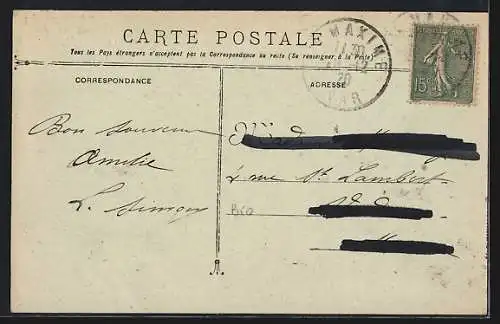 CARTE POSTALE
Tous les Pays étrangers n'acceptent pas la Correspondance au recto (Se renseigner à la Poste)
CORRESPONDANCE
ADRESSE
MAXIME
VAR
15c
Bon souvenir
Amélie
L.
4 rue St Lambert